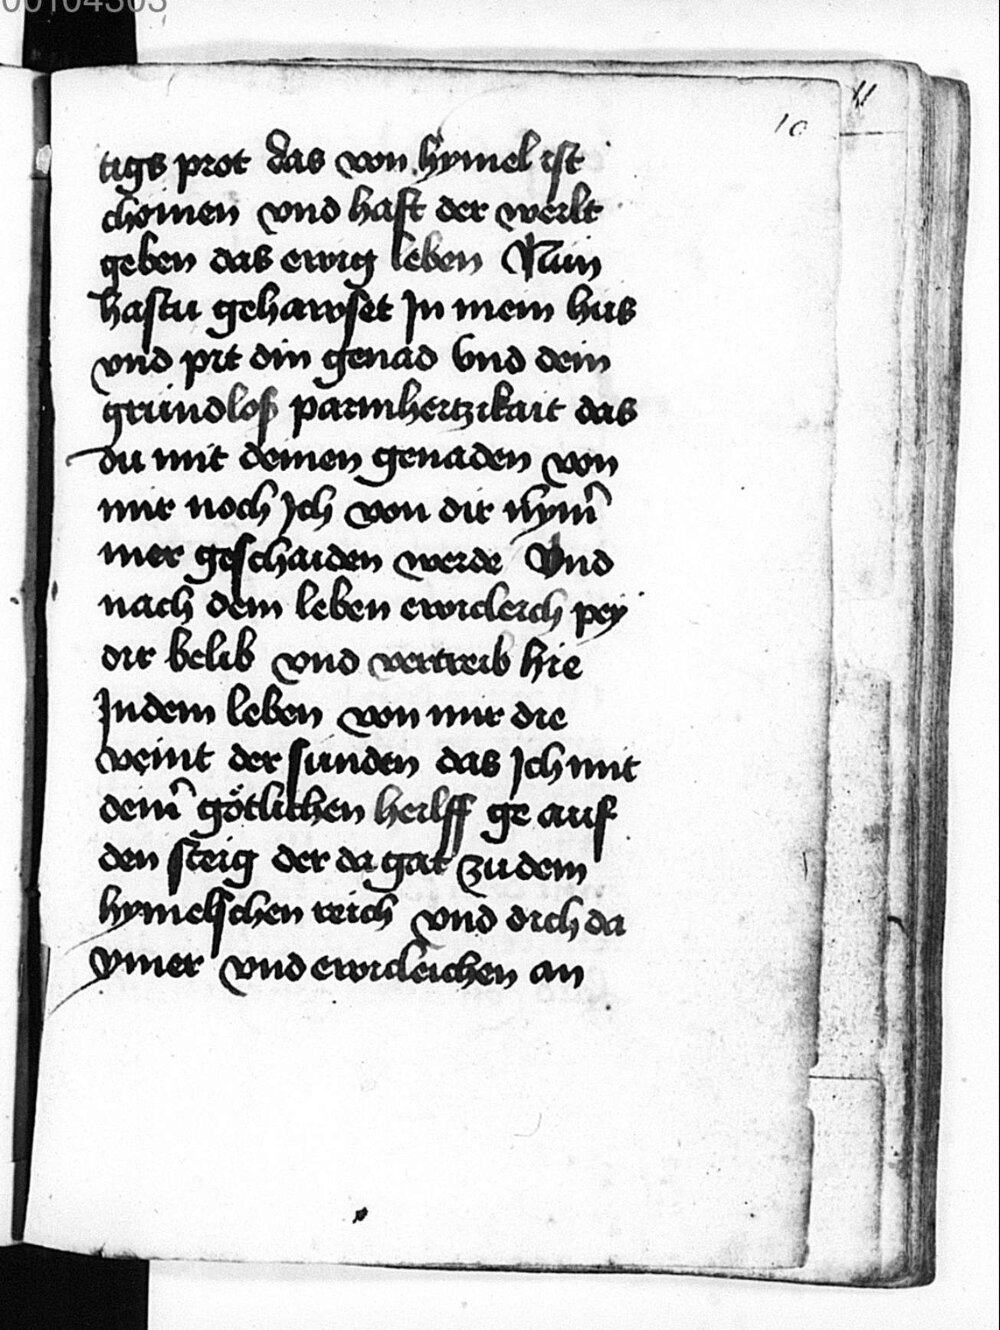 00104303
11
10
tigs prot das von hymel ist
chomen vnd hast der werlt
geben das ewig leben Nun
hastu gehawset In mein hus
vnd pit din genad Vnd dein
grundloß parmhertzikait das
du mit deinen genaden von
mir noch Ich von dir nym̄
mer geschaiden werde Vnd
nach dem leben ewicleich pey
dir belib vnd vertreib hie
Indem leben von mir die
veint der sunden das Ich mit
deim̄ götlichen heilff ge auf
den steig der da gat zu dem
hymelschen reich vnd dich da
ymer vnd ewicleichen an